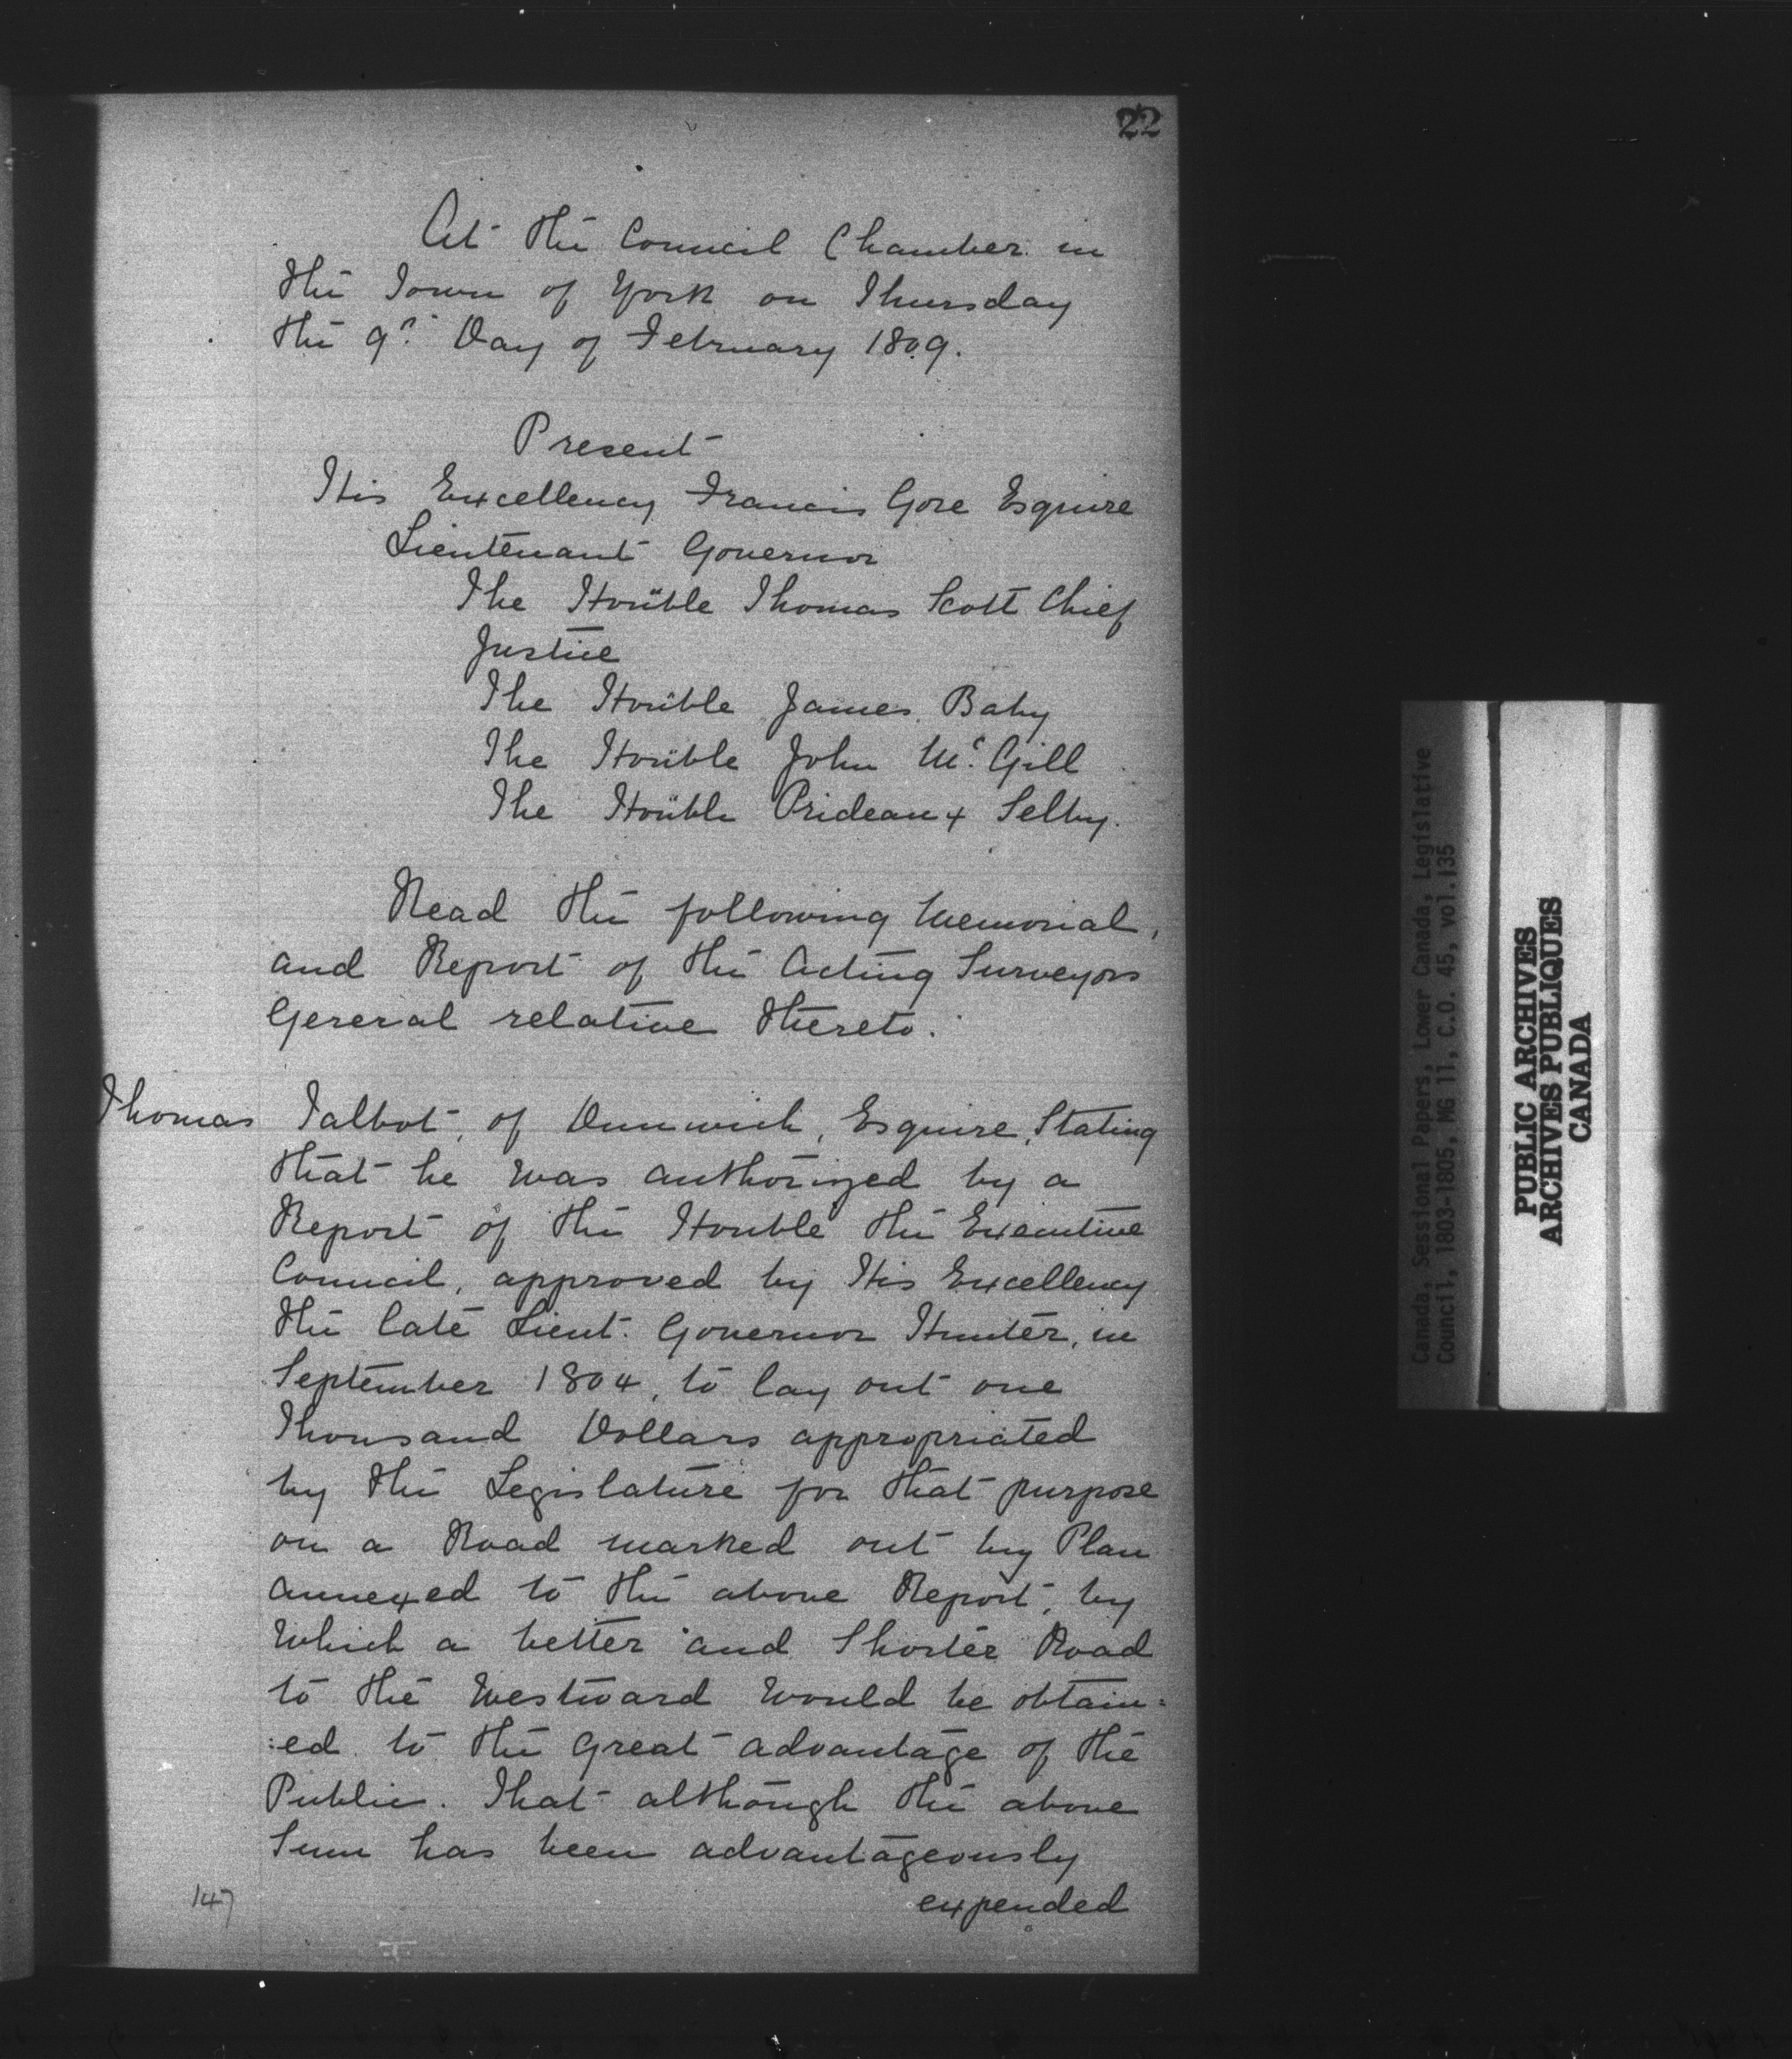 22
At the Council Chamber in
the Town of York on Thursday
the 9th Day of February 1809.
Present
His Excellency Francis Gore Esquire
Lieutenant Governor
The Honble Thomas Scott Chief
Justice
The Honble James Baby
The Honble John Mc. Gill
The Honble Prideaux Selby.
Read the following Memorial,
and Report of the Acting Surveyors
General relative thereto.
Thomas Talbot, of Dunwich, Esquire, Stating
that he was authorized by a
Report of the Honble the Executive
Council, approved by His Excellency
the late Lieut. Governor Hunter, in
September 1804, to lay out one
Thousand Dollars appropriated
by the Legislature for that purpose
on a Road marked out by Plan
annexed to the above Report, by
which a better and Shorter Road
to the Westward would be obtain=
:ed to the Great advantage of the
Public. That although the above
Sum has been advantageously
expended
147
Canada, Sessional Papers, Lower Canada, Legislative
Council, 1803-1805, MG 11, C.O. 45, vol.135
PUBLIC ARCHIVES
ARCHIVES PUBLIQUES
CANADA